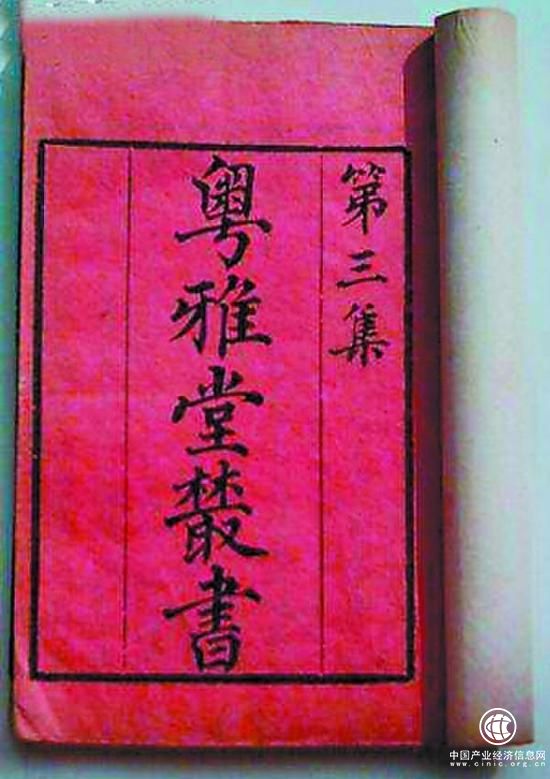 第三集
粤雅堂叢書
中国产业经济信息网
www.cinic.org.cn